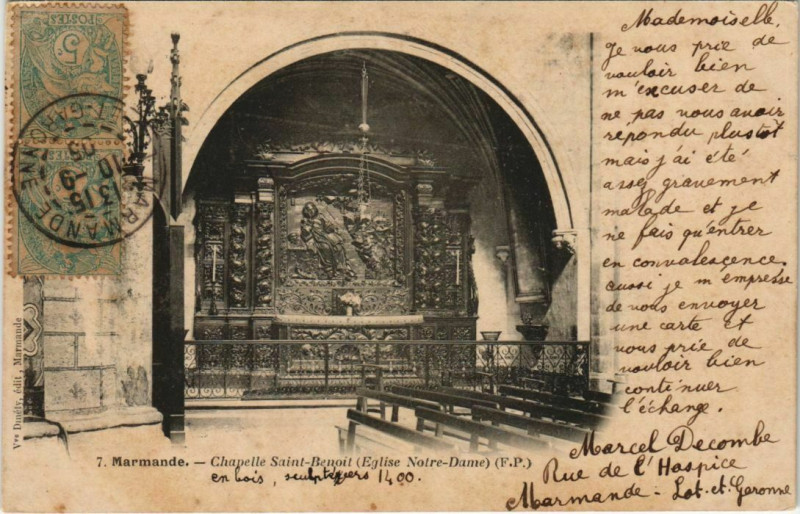 Mademoiselle,
Je vous prie de
vouloir bien
m'excuser de
ne pas vous avoir
répondu plustôt
mais j'ai été
assez gravement
malade et je
ne fais qu'entrer
en convalescence.
aussi je m'empresse
de vous envoyer
une carte et
vous prie de
vouloir bien
continuer
l'échange.
Marcel Decombe
Rue de l'Hospice
Marmande - Lot-et-Garonne
7. Marmande. — Chapelle Saint-Benoit (Eglise Notre-Dame) (F.P.)
en bois, sculpté vers 1400.
édit, Marmande
POSTES
5
MARMANDE
GARONNE
13 15
10 -9
05
POSTES